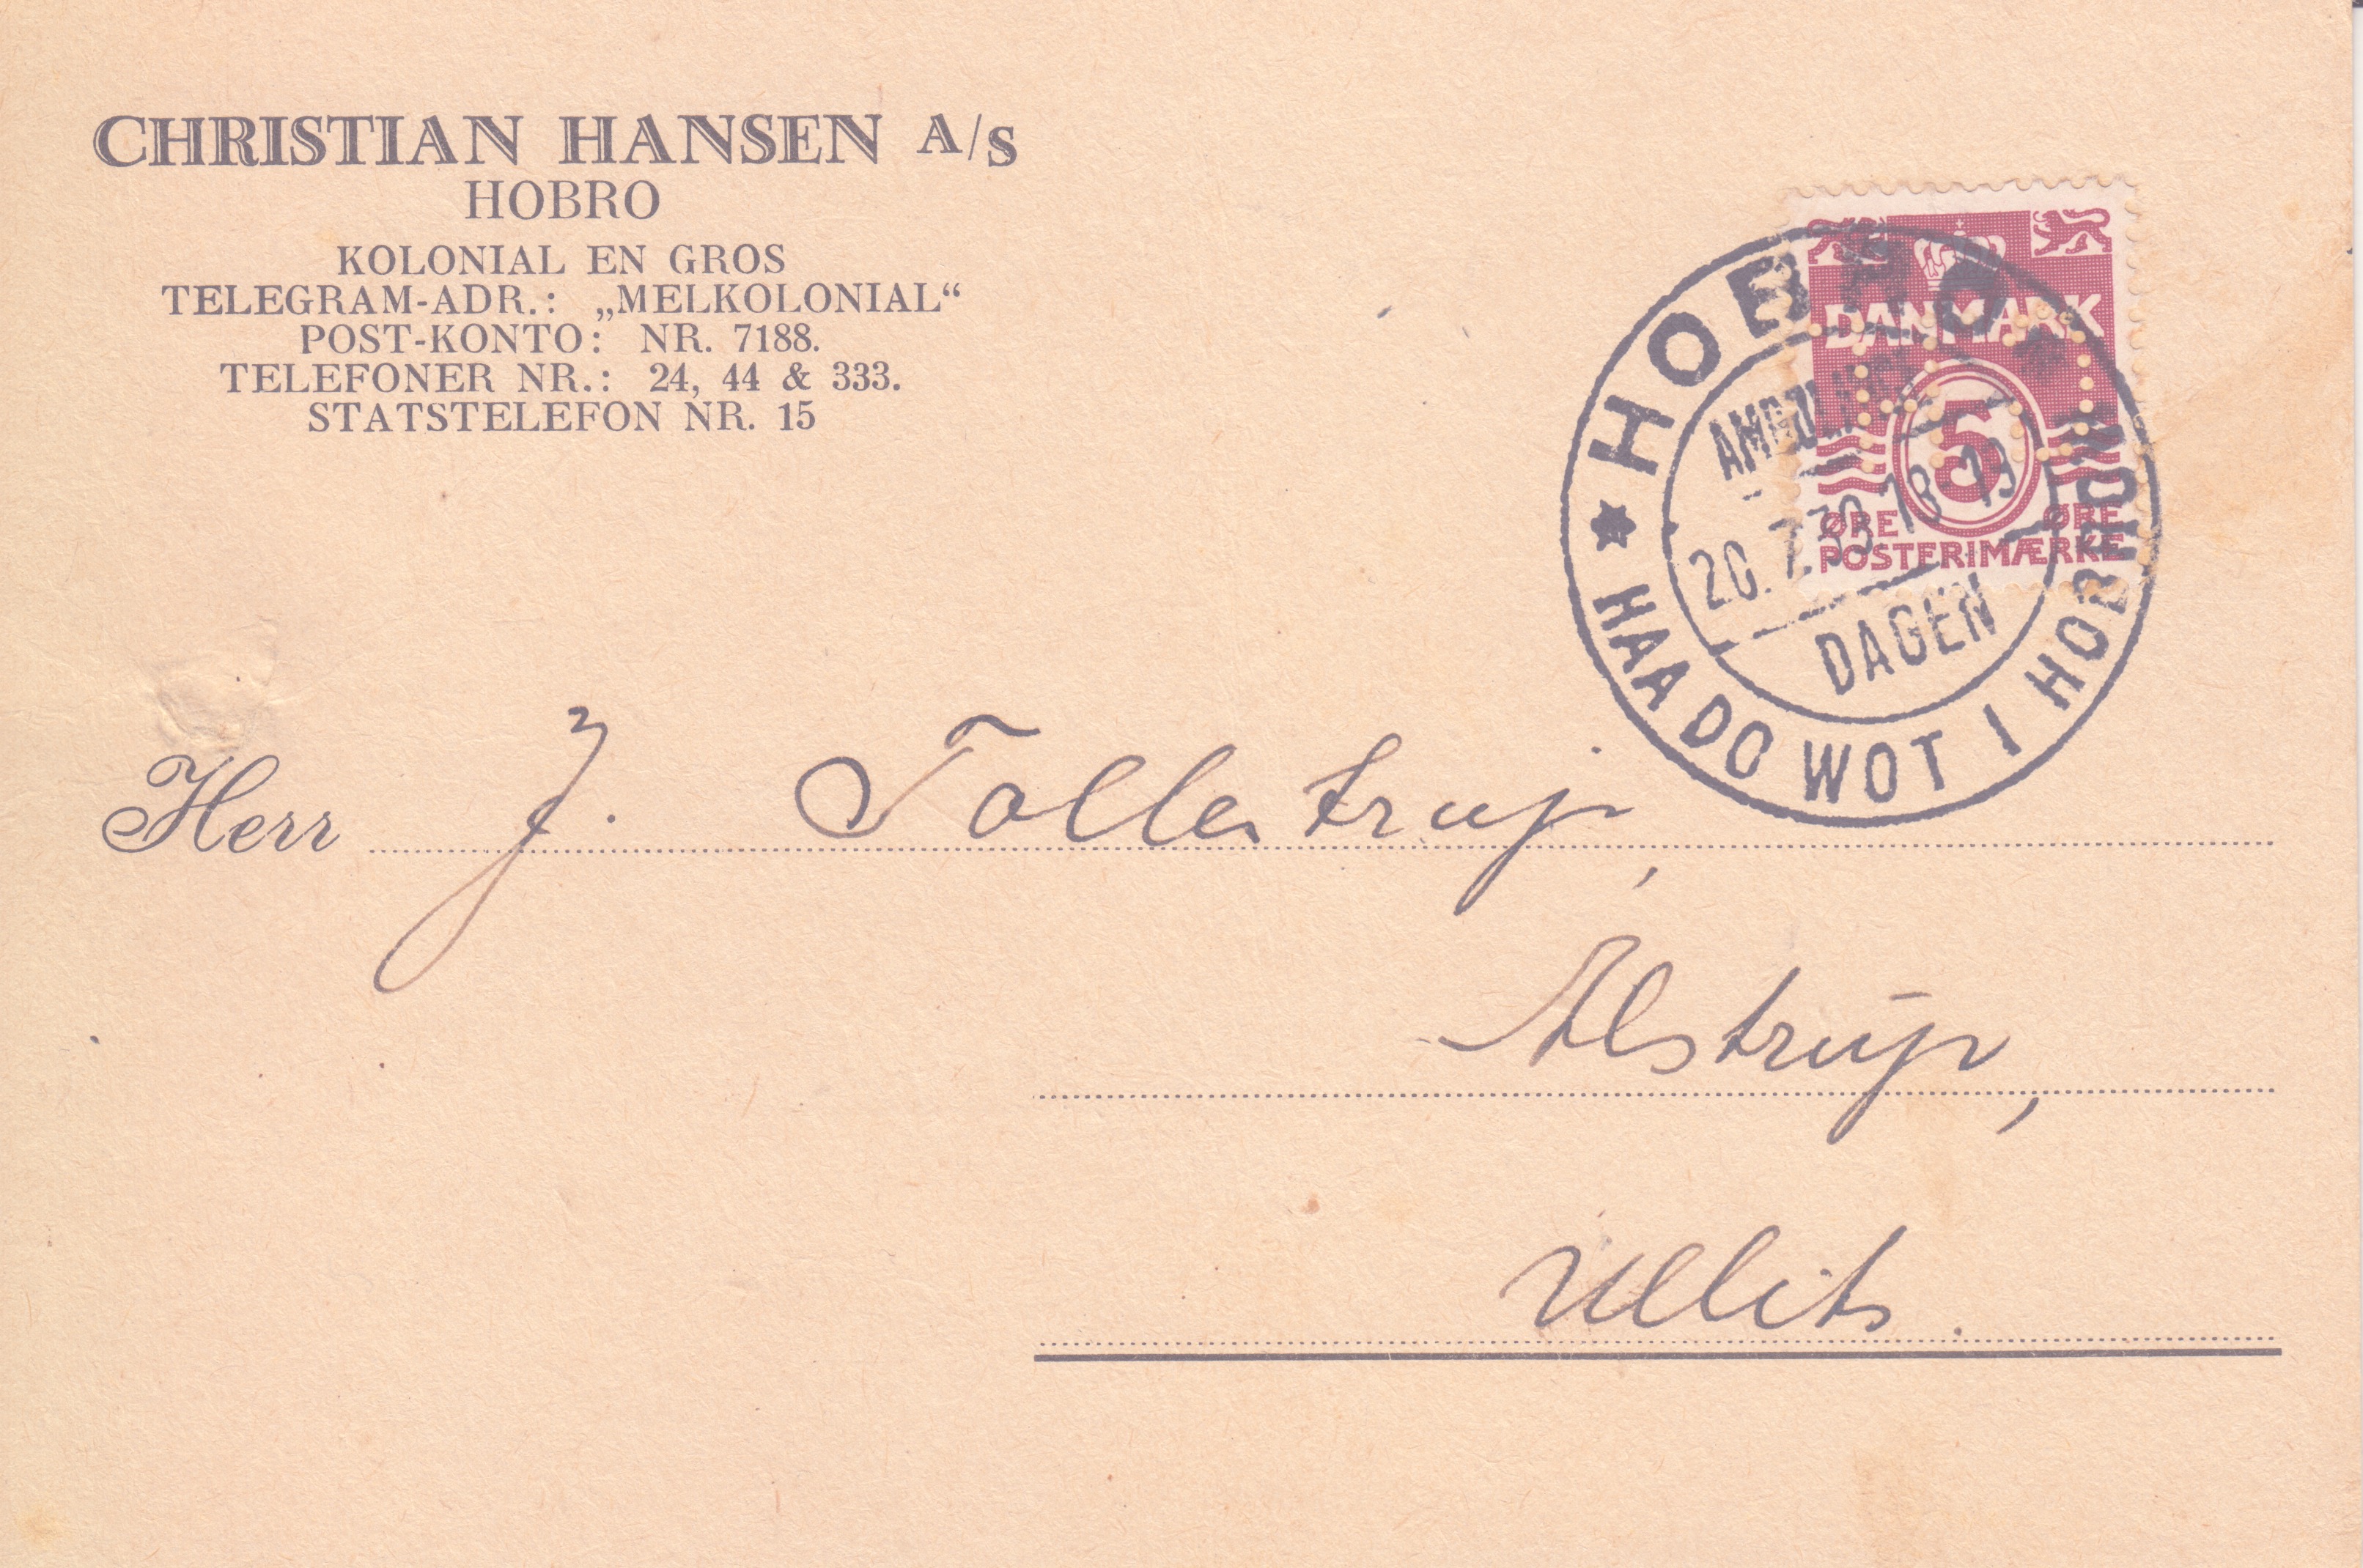 CHRISTIAN HANSEN A/S
HOBRO
KOLONIAL EN GROS
TELEGRAM-ADR.: „MELKOLONIAL“
POST-KONTO: NR. 7188.
TELEFONER NR.: 24, 44 & 333.
STATSTELEFON NR. 15
DANMARK
5
ØRE ØRE
POSTFRIMÆRKE
HOBRO
20.7.38.18-19
DAGEN
HAA DO WOT I HOBROW
Herr J. Tollestrup,
Alstrup,
Ullits.